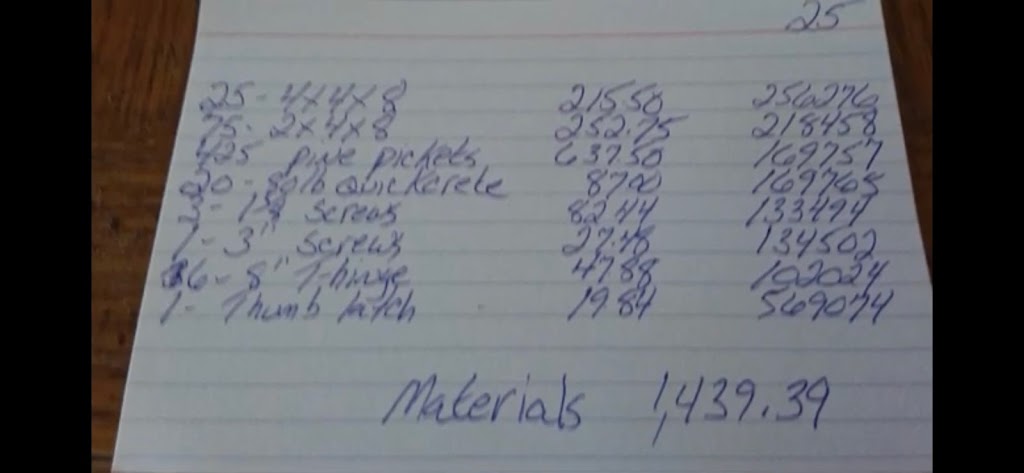 25
25 - 4x4x8 21550 256276
75 - 2x4x8 252.75 218458
425 pine pickets 63750 169757
20 - 80lb Quickcrete 8700 169765
2 - 1 5/8 screws 8244 133494
1 - 3" screws 27.48 134502
6 - 8" T-hinge 4788 102024
1 - Thumb latch 1984 569074
Materials 1,439.39